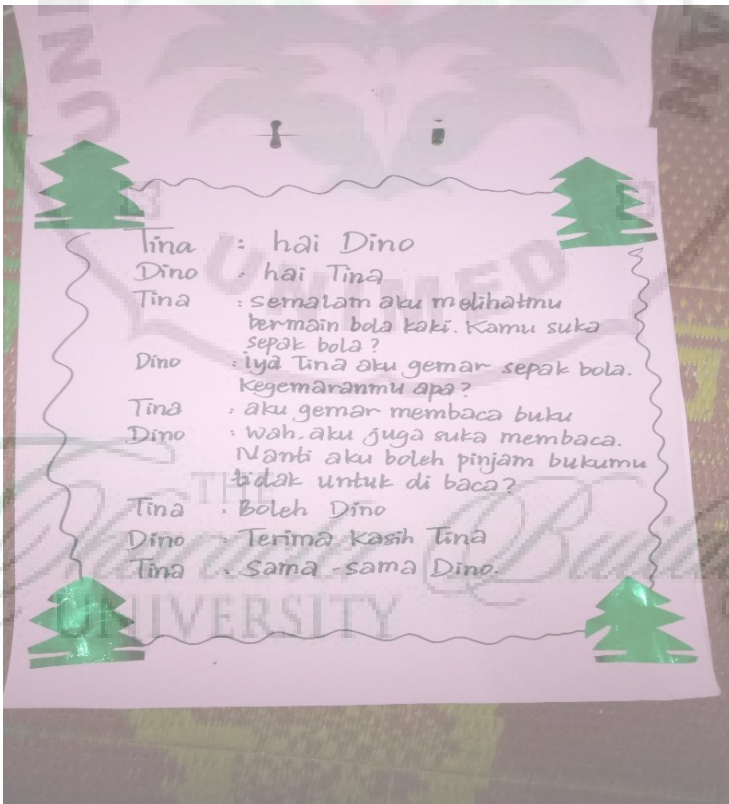 Tina : hai Dino
Dino : hai Tina
Tina : semalam aku melihatmu
bermain bola kaki. Kamu suka
sepak bola?
Dino : iya Tina aku gemar sepak bola.
Kegemaranmu apa?
Tina : aku gemar membaca buku
Dino : wah, aku juga suka membaca.
Nanti aku boleh pinjam bukumu
tidak untuk di baca?
Tina : Boleh Dino
Dino : Terima kasih Tina
Tina : Sama - sama Dino.
UNIMED
THE
Character Building
UNIVERSITY